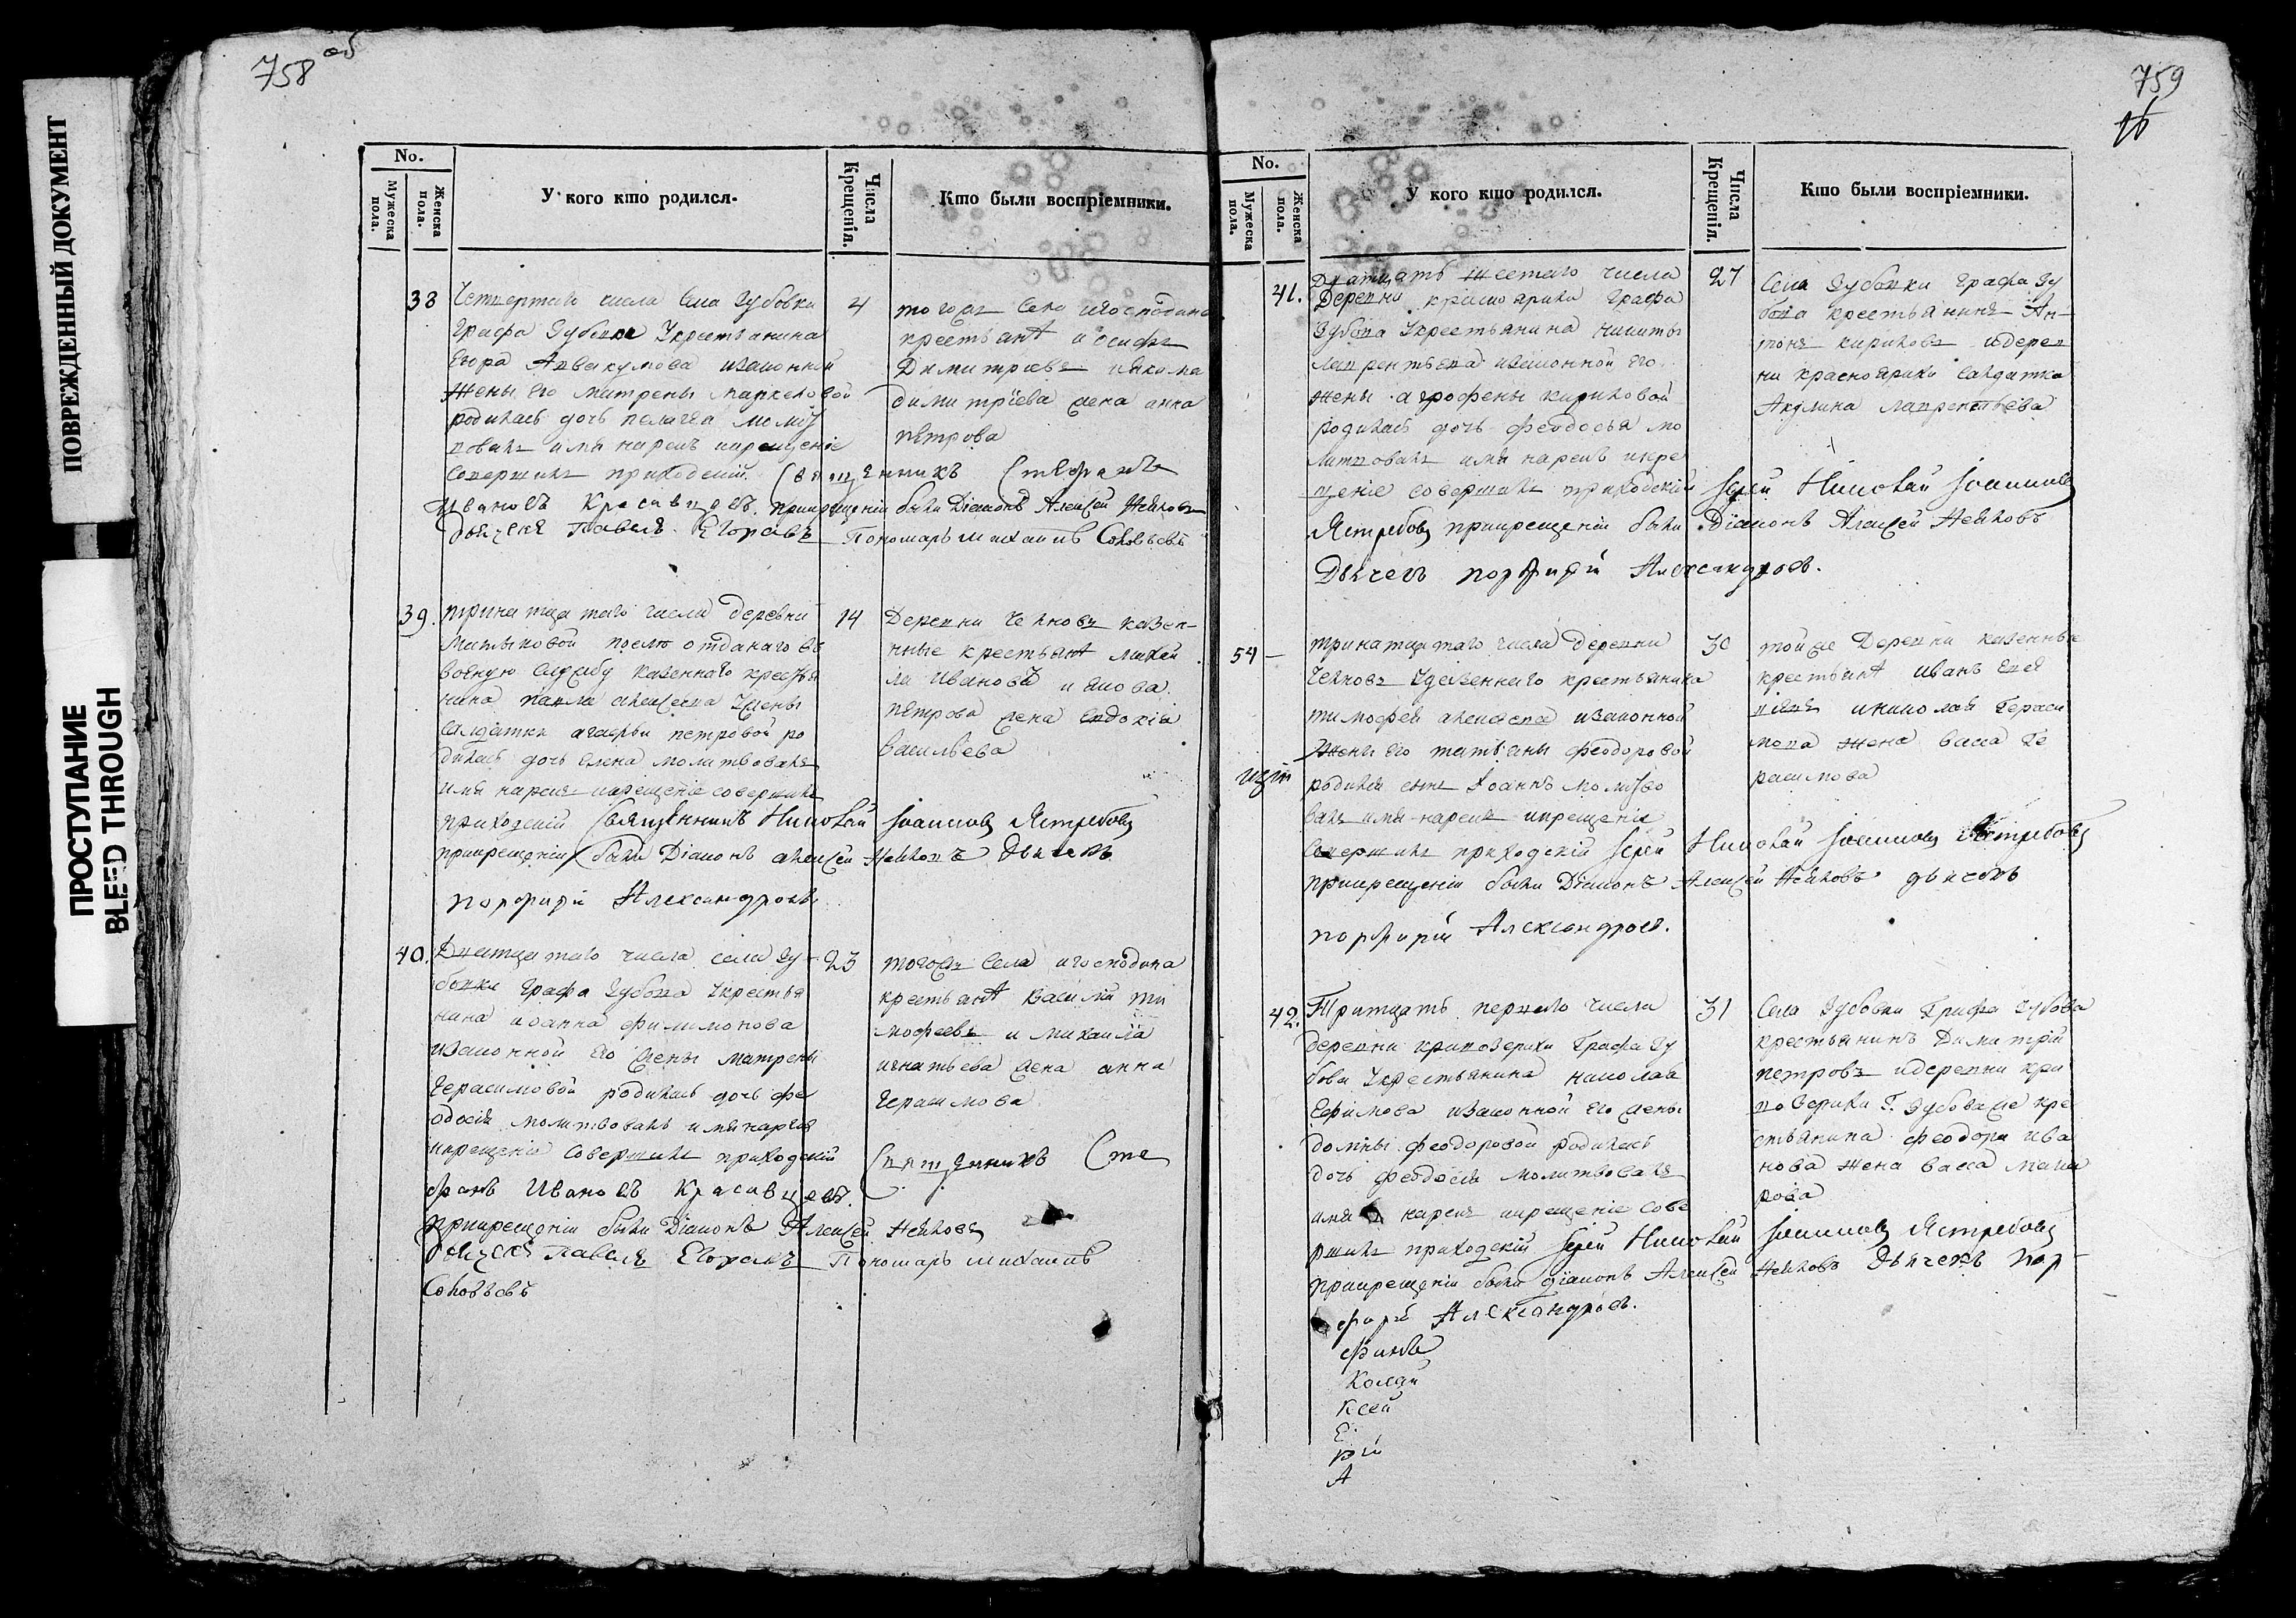 758 об
ПОВРЕЖДЕННЫЙ ДОКУМЕНТ
ПРОСТУПАНИЕ
BLEED THROUGH
No.
Мужеска пола.
Женска пола.
У кого кто родился.
Числа Крещенія.
Кто были воспріемники.
38
Четвертаго числа села Зубовки
графа Зубова Укрестьянина
Егора Аввакумова изаконной
жены его матрены маркеловой
родилась дочь пелагеа молит
вовалъ имя нарекъ икрещеніе
совершилъ приходскій Священникъ Стефанъ
Ивановъ Красавцовъ прикрещеніи были Діаконъ Алексей Нейковъ
дьячекъ Павелъ Егоровъ Пономарь михаилъ Соловьевъ
4
тогожъ села игосподина
крестьянѣ иосифъ
Димитріевъ
димитріева жена анна
петрова
39.
тринатцатаго числа деревни
послѣ отданаго въ
военую службу казеннаго крестья
нина павла алексеева жены
салдатки агафьи петровой ро
дилась дочь елена молитвовалъ
имя нарекъ икрещеніе совершилъ
приходскій Священникъ Николай Іоанновъ Ястребовъ
прикрещеніи были Діаконъ алексей Нейковъ Дьячекъ
порфирій Александровъ
14
Деревни казен-
ные крестьянѣ михай
ла Ивановъ и якова
петрова жена евдокія
васильева
40.
Дватцатаго числа села Зу
бовки графа Зубова Укрестья
нина иоанна филимонова
изаконной его жены матрены
Герасимовой родилась дочь фе
одосія молитвовалъ имя нарекъ
икрещеніе совершилъ приходскій Священникъ Сте
фанъ Ивановъ Красавцовъ.
прикрещеніи были Діаконъ Алексей Нейковъ
дьячекъ Павелъ Егоровъ Пономарь михаилъ
Соловьевъ
23
тогожъ села игосподина
крестьянѣ Василій ти
мофеевъ и михаила
игнатьева жена анна
Герасимова
759
16
No.
Мужеска пола.
Женска пола.
У кого кто родился.
Числа Крещенія.
Кто были воспріемники.
41.
Дватцать шестаго числа
Деревни красноярихи графа
Зубова Укрестьянина никиты
лаврентьева изаконной его
жены агрофены кириловой
родилась дочь феодосья мо
литвовалъ имя нарекъ икре
щеніе совершилъ приходскій Іерей Николай Іоанновъ
Ястребовъ прикрещеніи были Діаконъ Алексей Нейковъ
Дьячекъ порфирій Александровъ.
27
Села Зубовки графа Зу
бова крестьянинъ Ан-
тонъ кириловъ идерев
ни красноярихи салдатка
Акулина лаврентьева
54
тринатцатаго числа деревни
казеннаго крестьянина
тимофея алексеева изаконной
жены его татьяны феодоровой
родился сынъ Іоаннъ молитво
валъ имя нарекъ икрещеніе
совершилъ приходскій Іерей Николай Іоанновъ Ястребовъ
прикрещеніи были Діаконъ Алексей Нейковъ дьячекъ
порфирій Александровъ.
30
тойже Деревни казенные
крестьянѣ иванъ
иниколая Гераси
мова жена васа Ге
расимова
42.
Тритцать перваго числа
деревни кривозерихи Графа Зу
бова Укрестьянина николая
Ефимова изаконной его жены
домны феодоровой родилась
дочь феодосія молитвовалъ
имя нарекъ икрещеніе сове
ршилъ приходскій Іерей Николай Іоанновъ Ястребовъ
прикрещеніи были діаконъ Алексей Нейковъ Дьячекъ пор-
фирій Александровъ.
31
Села Зубовки Графа Зубова
крестьянинъ Димитрій
петровъ идеревни кри
возерихи Г. Зубова же кре
стьянина феодора ива
нова жена васа мака
рова
финъ
Колай
ксей
Е
рій
А